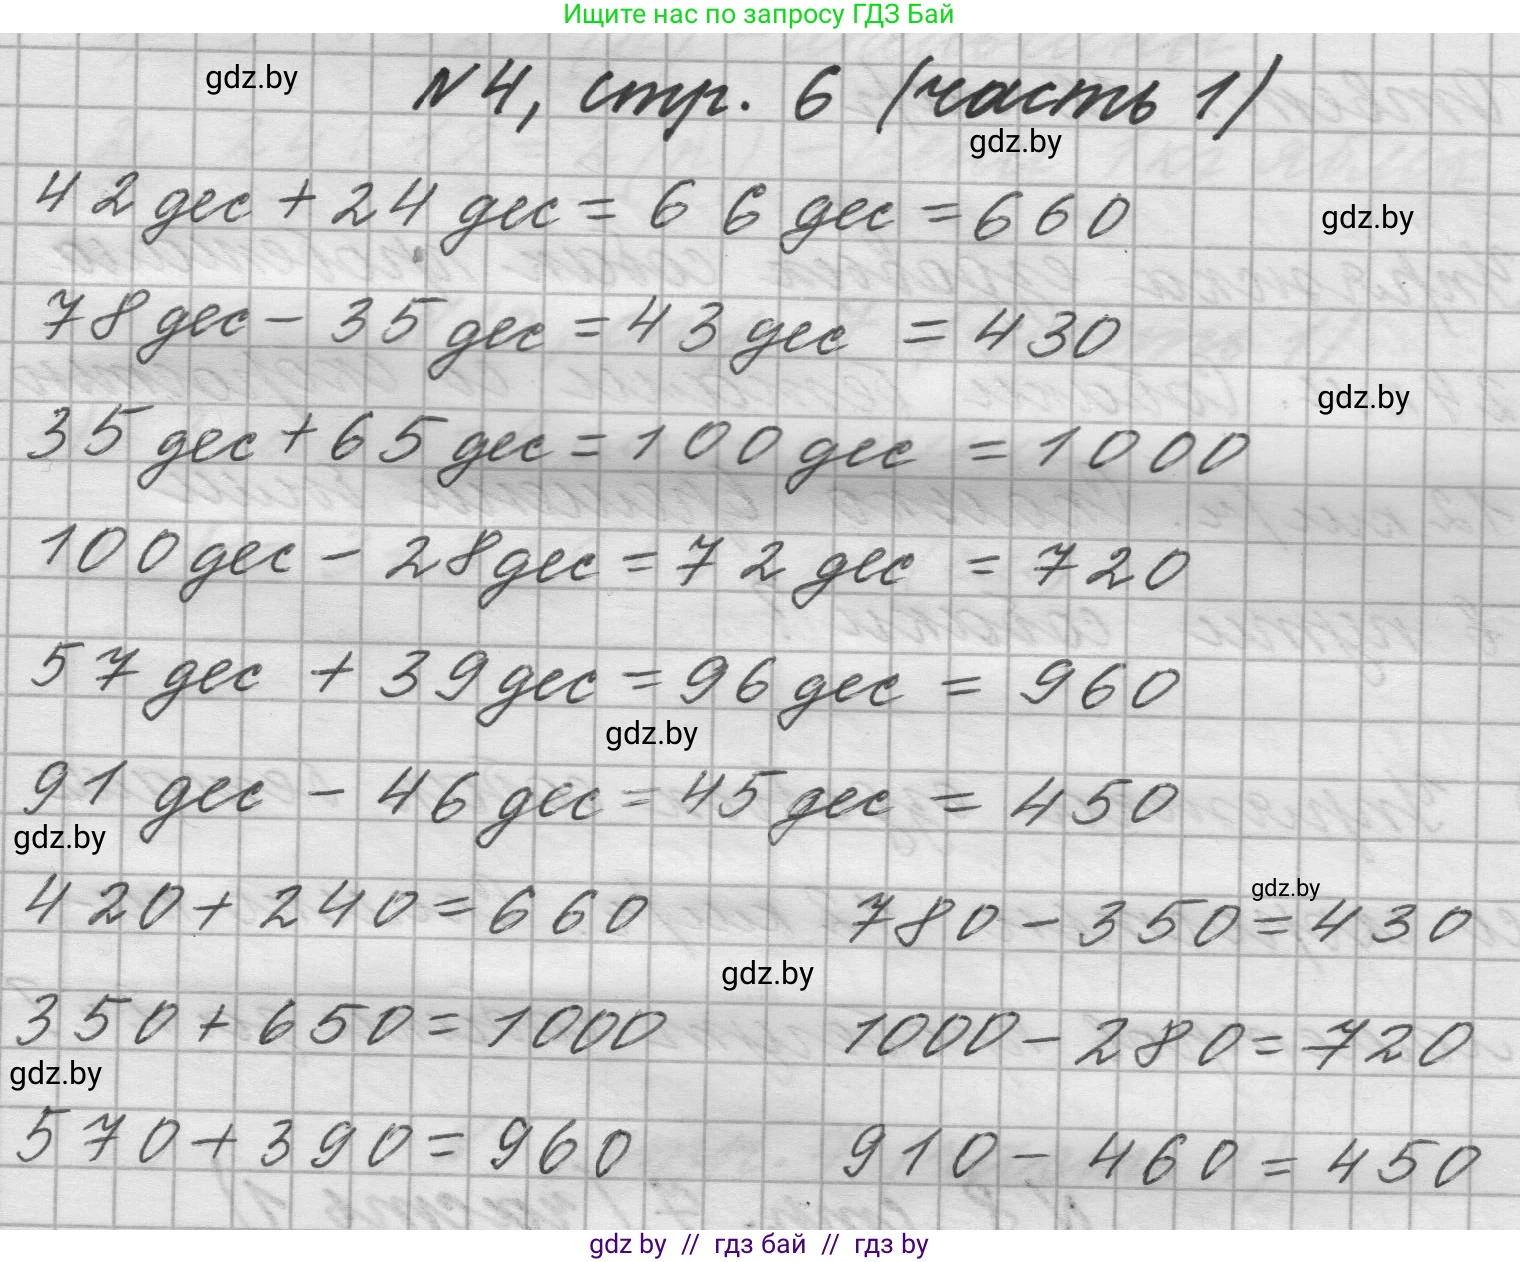 Ищите нас по запросу ГДЗ Бай
gdz.by
N4, стр. 6 (часть 1)
gdz.by
42 дес + 24 дес = 66 дес = 660
gdz.by
78 дес - 35 дес = 43 дес = 430
gdz.by
35 дес + 65 дес = 100 дес = 1000
100 дес - 28 дес = 72 дес = 720
57 дес + 39 дес = 96 дес = 960
gdz.by
91 дес - 46 дес = 45 дес = 450
gdz.by
420 + 240 = 660 780 - 350 = 430
gdz.by
gdz.by
350 + 650 = 1000 1000 - 280 = 720
gdz.by
570 + 390 = 960 910 - 460 = 450
gdz by // гдз бай // гдз by